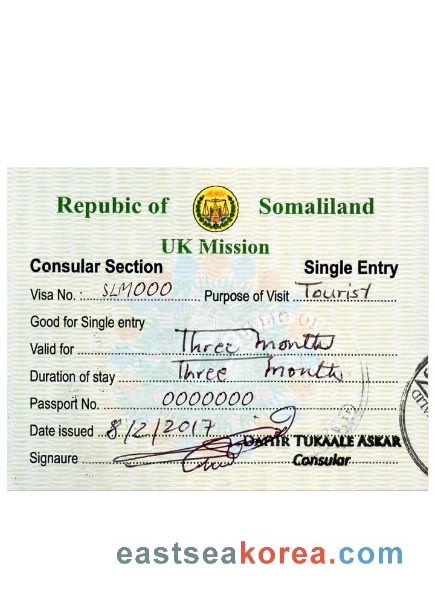 Repubic of Somaliland
UK Mission
Consular Section Single Entry
Visa No. : SLM000 Purpose of Visit Tourist
Good for Single entry
Valid for Three months
Duration of stay Three months
Passport No. 0000000
Date issued 8/2/2017
DAHIR TUKAALE ASKAR
Signaure Consular
eastseakorea.com